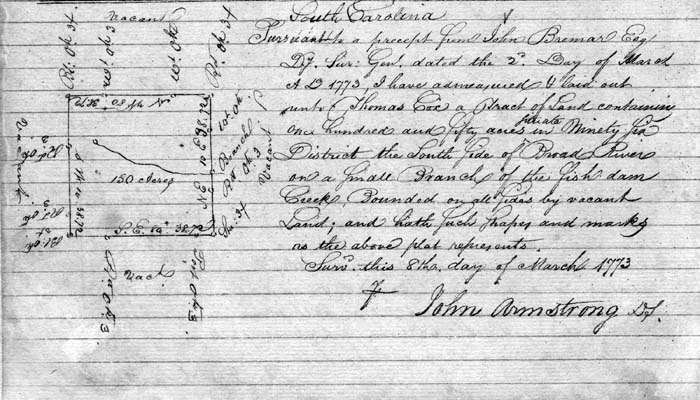 South Carolina
Pursuant to a precept from John Bremar Esq
D.y Sur: Gen.l dated the 2.d Day of March
A D 1773, I have admeasured & laid out
unto Thomas Cox a Tract of Land containing
One hundred and fifty acres situate in Ninety Six
District the South Side of Broad River
on a Small Branch of the fish dam
Creek, Bounded on all Sides by vacant
Land; and hath Such Shapes and marks
as the above plat represents.
Surv.d this 8th. day of March 1773
John Armstrong D.S.
Vacant
150 Acres
Branch
Vacant
S. E. 80° 38.72
Vact
Vacant